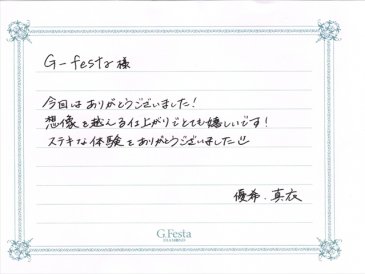 G-festa様
今回はありがとうございました!
想像を越える仕上がりでとても嬉しいです!
ステキな体験をありがとうございました
優希.真衣
G.Festa